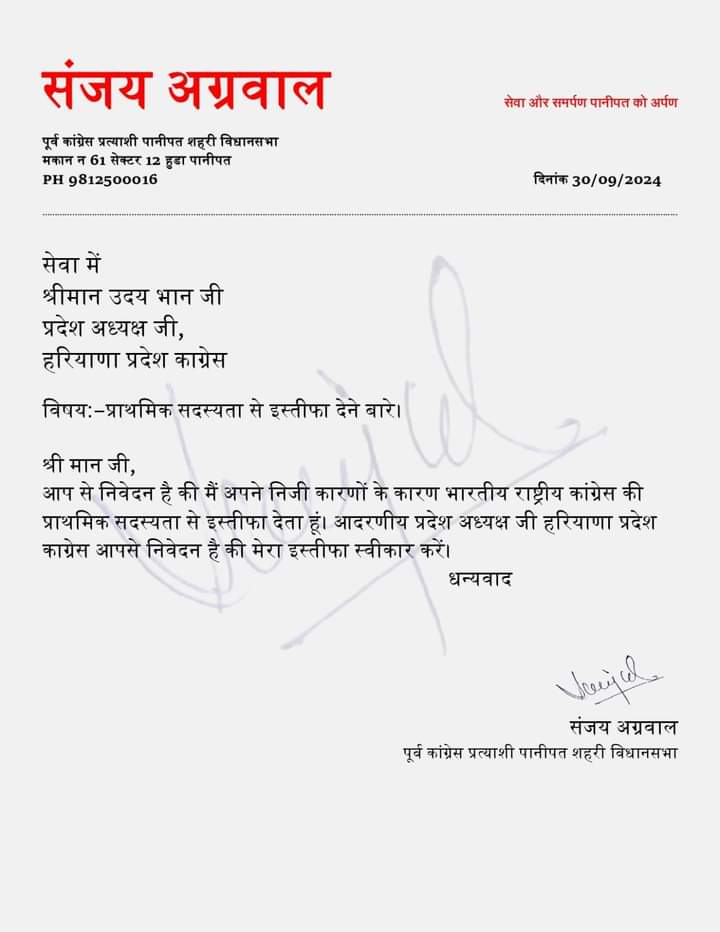 संजय अग्रवाल
सेवा और समर्पण पानीपत को अर्पण
पूर्व कांग्रेस प्रत्याशी पानीपत शहरी विधानसभा
मकान न 61 सेक्टर 12 हुडा पानीपत
PH 9812500016
दिनांक 30/09/2024
सेवा में
श्रीमान उदय भान जी
प्रदेश अध्यक्ष जी,
हरियाणा प्रदेश काग्रेस
विषय:-प्राथमिक सदस्यता से इस्तीफा देने बारे।
श्री मान जी,
आप से निवेदन है की मैं अपने निजी कारणों के कारण भारतीय राष्ट्रीय कांग्रेस की
प्राथमिक सदस्यता से इस्तीफा देता हूं। आदरणीय प्रदेश अध्यक्ष जी हरियाणा प्रदेश
काग्रेस आपसे निवेदन है की मेरा इस्तीफा स्वीकार करें।
धन्यवाद
संजय अग्रवाल
पूर्व कांग्रेस प्रत्याशी पानीपत शहरी विधानसभा